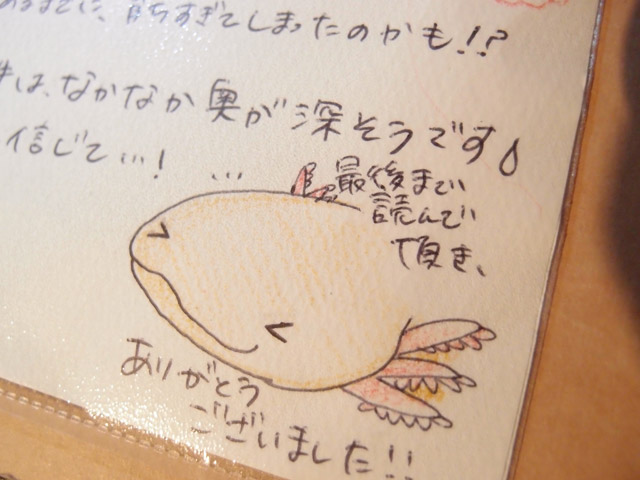 すぎてしまったのかも!!?
は、なかなか奥が深そうです
信じて…!
…
最後まで
読んで
頂き、
ありがとう
ございました!!